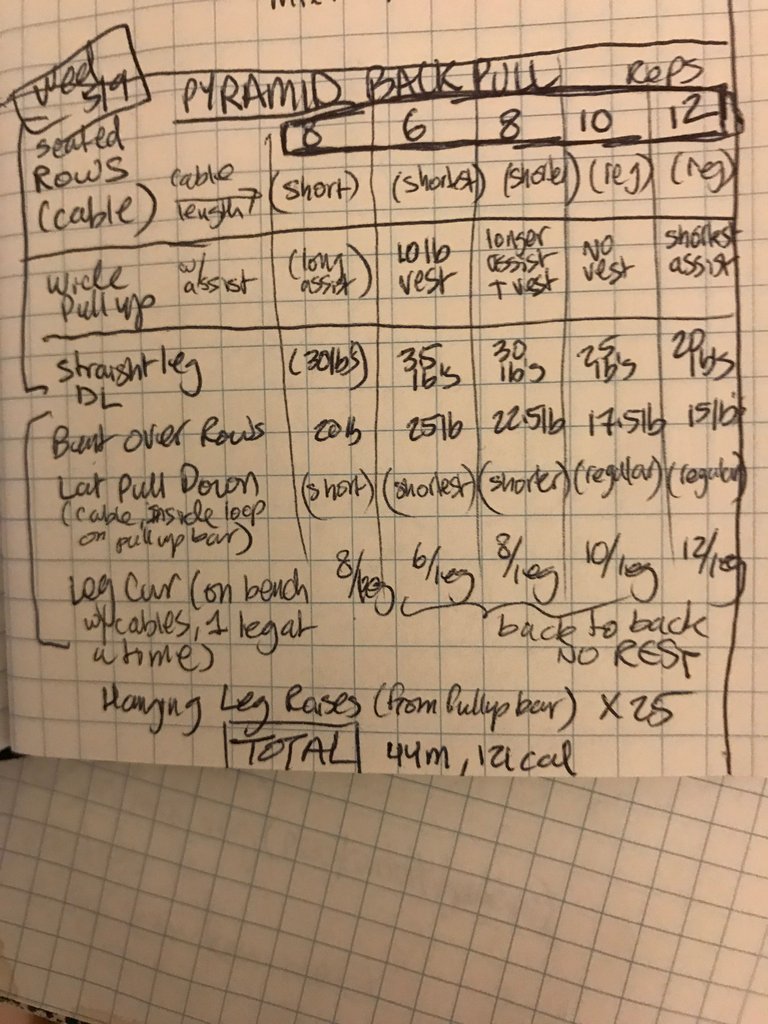 Wed 5/9
PYRAMID BACK PULL REPS
8 6 8 10 12
Seated
ROWS
(cable) cable length → (short) (shortest) (shorter) (reg) (reg)
Wide Pull up w/ assist (long assist) 10 lb vest longer assist + vest NO vest shortest assist
Straight leg DL (30lbs) 35 lb's 30 lb's 25 lb's 20 lb's
Bent Over Rows 20lb 25lb 22.5lb 17.5lb 15lb
Lat Pull Down (short) (shortest) (shorter) (regular) (regular)
(cable, inside loop
on pullup bar)
Leg Curl (on bench 8/leg 6/leg 8/leg 10/leg 12/leg
w/ cables, 1 leg at back to back
a time) NO REST
Hanging Leg Raises (from Pullup bar) X 25
TOTAL 44m, 121 cal